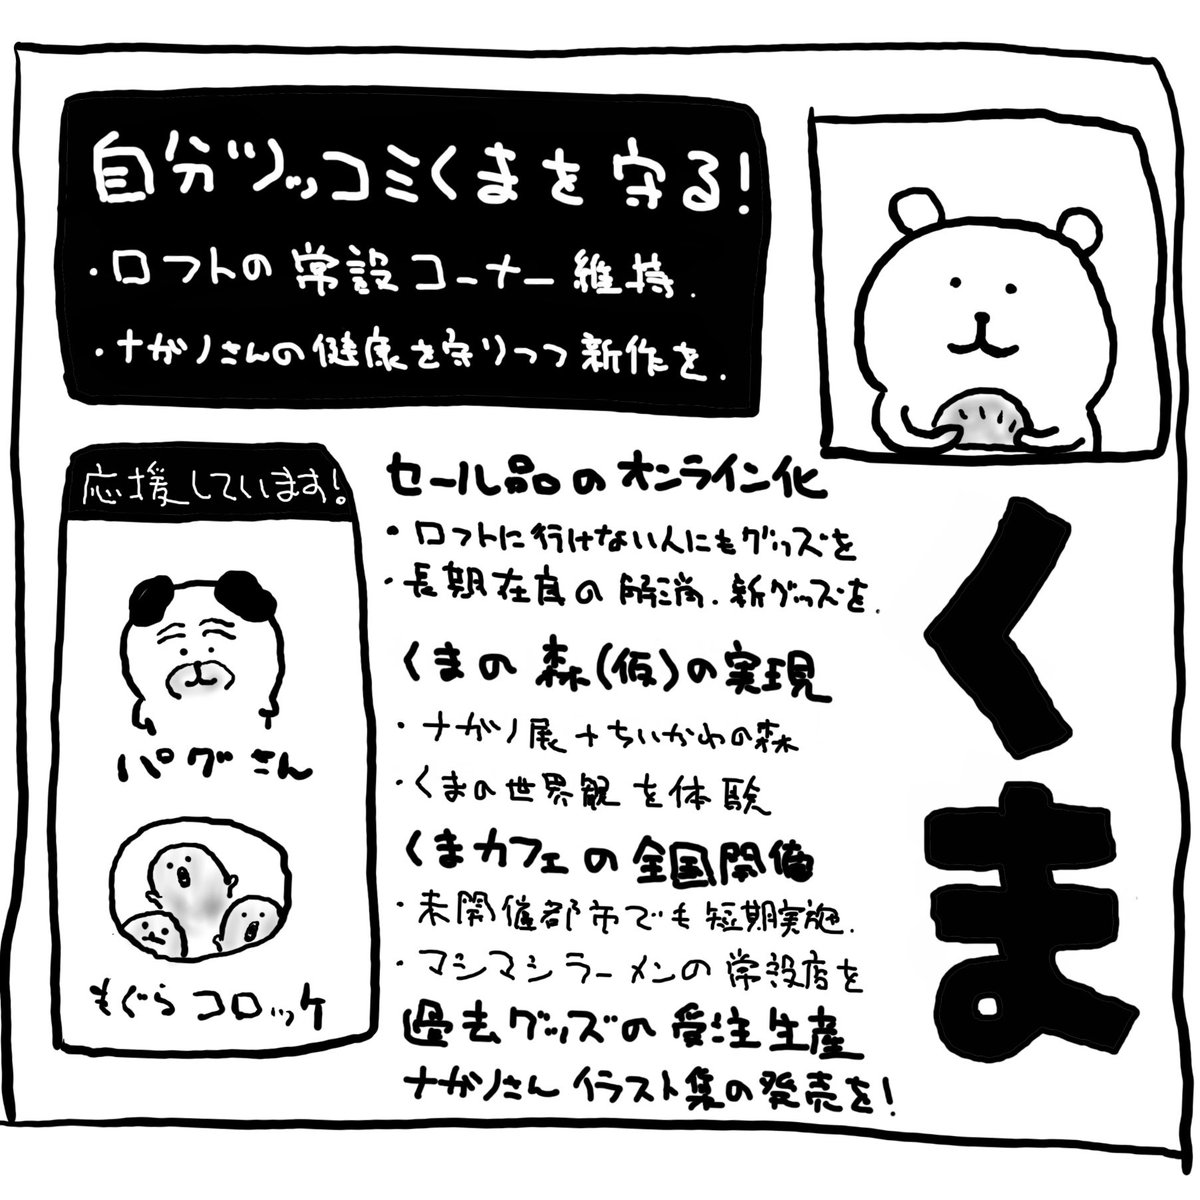 自分ツッコミくまを守る!
・ロフトの常設コーナー維持.
・ナガノさんの健康を守りつつ新作を.
くま
応援しています!
パグさん
もぐらコロッケ
セール品のオンライン化
・ロフトに行けない人にもグッズを
・長期在庫の解消.新グッズを.
くまの森(仮)の実現
・ナガノ展+ちいかわの森
・くまの世界観を体験
くまカフェの全国開催
・未開催都市でも短期実施.
・マシマシラーメンの常設店を
過去グッズの受注生産
ナガノさんイラスト集の発売を!